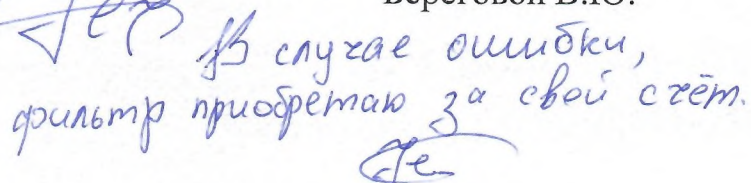 Береговой В.Ю.
В случае ошибки,
фильтр приобретаю за свой счёт.